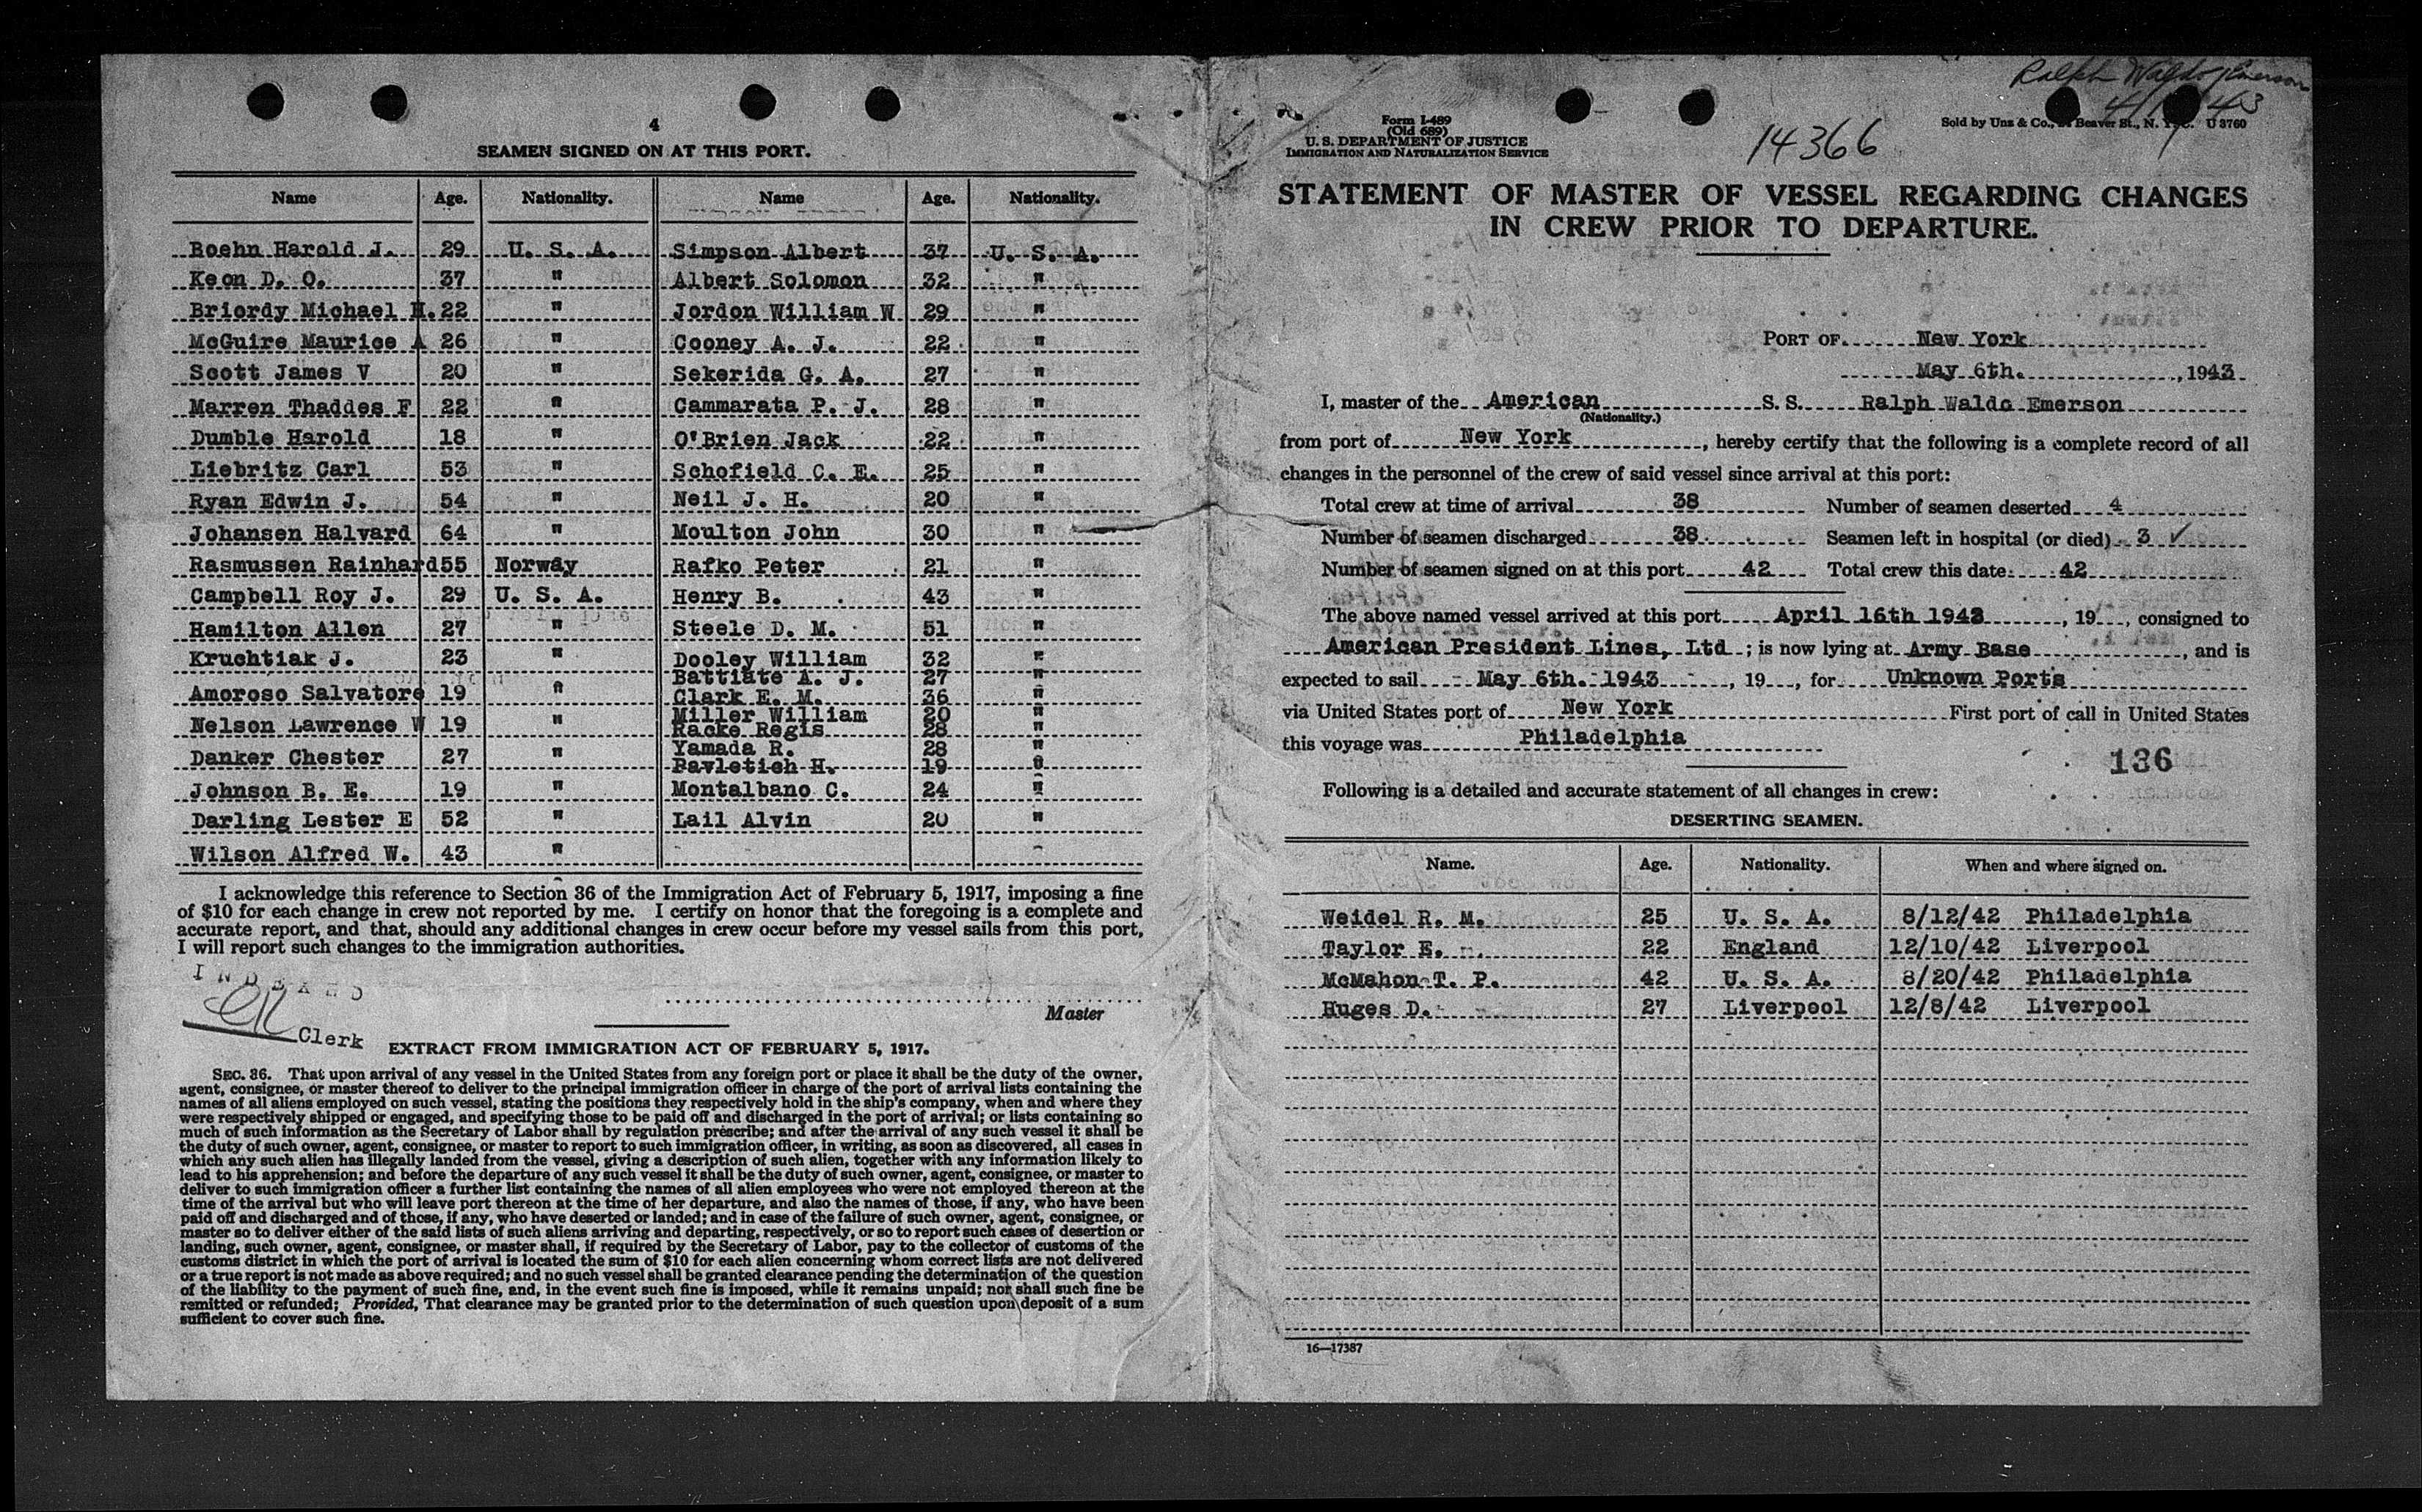 4
SEAMEN SIGNED ON AT THIS PORT.
Name Age. Nationality. Name Age. Nationality.
Boehn Harold J. 29 U. S. A. Simpson Albert 37 U. S. A.
Keon D. O. 37 " Albert Solomon 32 "
Briordy Michael H. 22 " Jordon William W 29 "
McGuire Maurice A 26 " Cooney A. J. 22 "
Scott James V 20 " Sekerida G. A. 27 "
Marren Thaddes F 22 " Cammarata P. J. 28 "
Dumble Harold 18 " O'Brien Jack 22 "
Liebritz Carl 53 " Schofield C. E. 25 "
Ryan Edwin J. 54 " Neil J. H. 20 "
Johansen Halvard 64 " Moulton John 30 "
Rasmussen Rainhard 55 Norway Rafko Peter 21 "
Campbell Roy J. 29 U. S. A. Henry B. 43 "
Hamilton Allen 27 " Steele D. M. 51 "
Kruchtiak J. 23 " Dooley William 32 "
Battiate A. J. 27 "
Amoroso Salvatore 19 " Clark E. M. 36 "
Miller William 20 "
Nelson Lawrence W 19 " Racke Regis 28 "
Yamada R. 28 "
Danker Chester 27 " Pavletich H. 19 "
Johnson B. E. 19 " Montalbano C. 24 "
Darling Lester E 52 " Lail Alvin 20 "
Wilson Alfred W. 43 "
I acknowledge this reference to Section 36 of the Immigration Act of February 5, 1917, imposing a fine
of $10 for each change in crew not reported by me. I certify on honor that the foregoing is a complete and
accurate report, and that, should any additional changes in crew occur before my vessel sails from this port,
I will report such changes to the immigration authorities.
INDEXED
Master
Clerk
EXTRACT FROM IMMIGRATION ACT OF FEBRUARY 5, 1917.
SEC. 36. That upon arrival of any vessel in the United States from any foreign port or place it shall be the duty of the owner,
agent, consignee, or master thereof to deliver to the principal immigration officer in charge of the port of arrival lists containing the
names of all aliens employed on such vessel, stating the positions they respectively hold in the ship's company, when and where they
were respectively shipped or engaged, and specifying those to be paid off and discharged in the port of arrival; or lists containing so
much of such information as the Secretary of Labor shall by regulation prescribe; and after the arrival of any such vessel it shall be
the duty of such owner, agent, consignee, or master to report to such immigration officer, in writing, as soon as discovered, all cases in
which any such alien has illegally landed from the vessel, giving a description of such alien, together with any information likely to
lead to his apprehension; and before the departure of any such vessel it shall be the duty of such owner, agent, consignee, or master to
deliver to such immigration officer a further list containing the names of all alien employees who were not employed thereon at the
time of the arrival but who will leave port thereon at the time of her departure, and also the names of those, if any, who have been
paid off and discharged and of those, if any, who have deserted or landed; and in case of the failure of such owner, agent, consignee, or
master so to deliver either of the said lists of such aliens arriving and departing, respectively, or so to report such cases of desertion or
landing, such owner, agent, consignee, or master shall, if required by the Secretary of Labor, pay to the collector of customs of the
customs district in which the port of arrival is located the sum of $10 for each alien concerning whom correct lists are not delivered
or a true report is not made as above required; and no such vessel shall be granted clearance pending the determination of the question
of the liability to the payment of such fine, and, in the event such fine is imposed, while it remains unpaid; nor shall such fine be
remitted or refunded; Provided, That clearance may be granted prior to the determination of such question upon deposit of a sum
sufficient to cover such fine.
Ralph Waldo Emerson
Form I-489
(Old 689)
U. S. DEPARTMENT OF JUSTICE
IMMIGRATION AND NATURALIZATION SERVICE
14366
Sold by Unz & Co., Beaver St., N. Y. C. U 3760
STATEMENT OF MASTER OF VESSEL REGARDING CHANGES
IN CREW PRIOR TO DEPARTURE.
PORT OF New York
May 6th. , 1943
I, master of the American S. S. Ralph Waldo Emerson
(Nationality.)
from port of New York , hereby certify that the following is a complete record of all
changes in the personnel of the crew of said vessel since arrival at this port:
Total crew at time of arrival 38 Number of seamen deserted 4
Number of seamen discharged 38 Seamen left in hospital (or died) 3 ✓
Number of seamen signed on at this port 42 Total crew this date 42
The above named vessel arrived at this port April 16th 1943 , 19 , consigned to
American President Lines, Ltd ; is now lying at Army Base , and is
expected to sail May 6th. 1943 , 19 , for Unknown Ports
via United States port of New York First port of call in United States
this voyage was Philadelphia
136
Following is a detailed and accurate statement of all changes in crew:
DESERTING SEAMEN.
Name. Age. Nationality. When and where signed on.
Weidel R. M. 25 U. S. A. 8/12/42 Philadelphia
Taylor E. 22 England 12/10/42 Liverpool
McMahon T. P. 42 U. S. A. 8/20/42 Philadelphia
Huges D. 27 Liverpool 12/8/42 Liverpool
16—17387